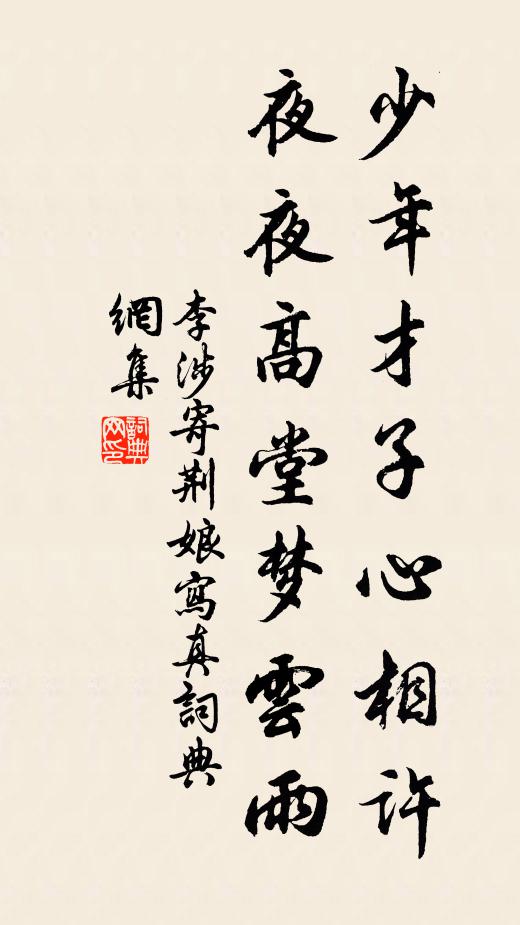 少年才子心相许
夜夜高堂梦雲雨
李涉寄荆娘寫真詞典
網集
詞典网印